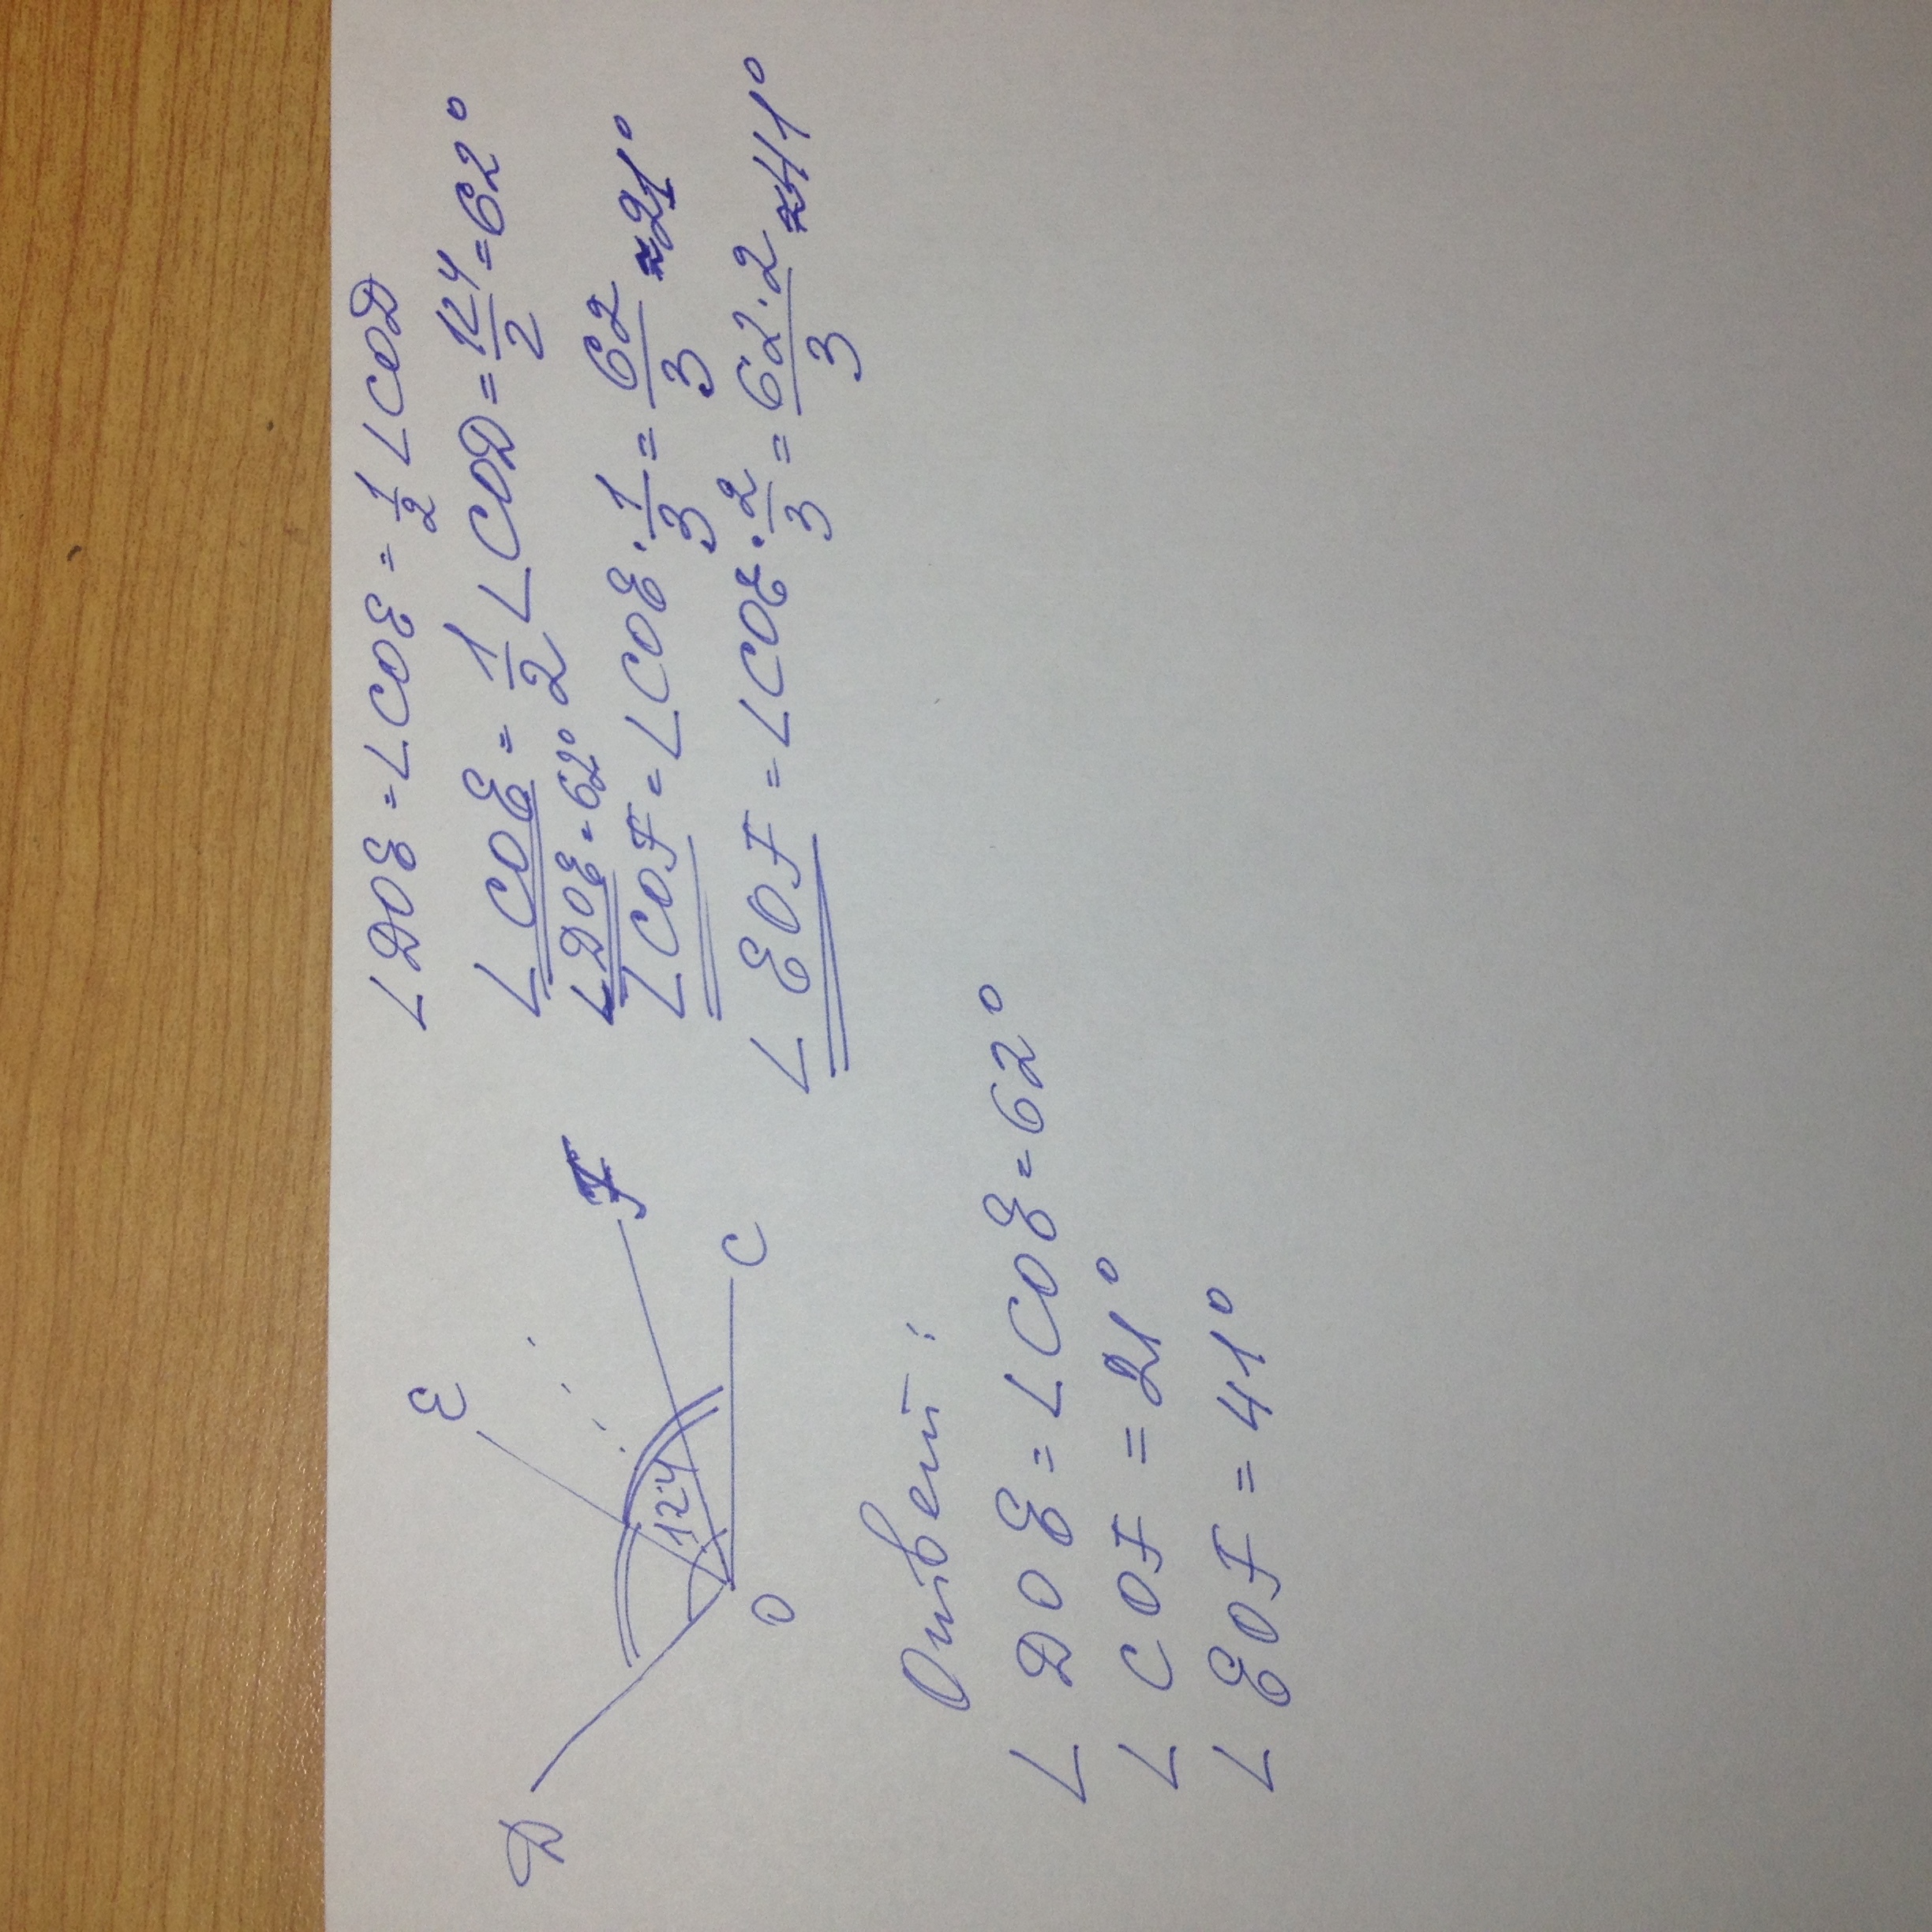 E
D
F
124
O
C
∠DOE = ∠COE = 1/2 ∠COD
∠COE = 1/2 ∠COD = 124/2 = 62°
∠DOE = 62°
∠COF = ∠COE · 1/3 = 62/3 ≈ 21°
∠EOF = ∠COE · 2/3 = 62·2/3 ≈ 41°
Ответ:
∠DOE = ∠COE = 62°
∠COF = 21°
∠EOF = 41°